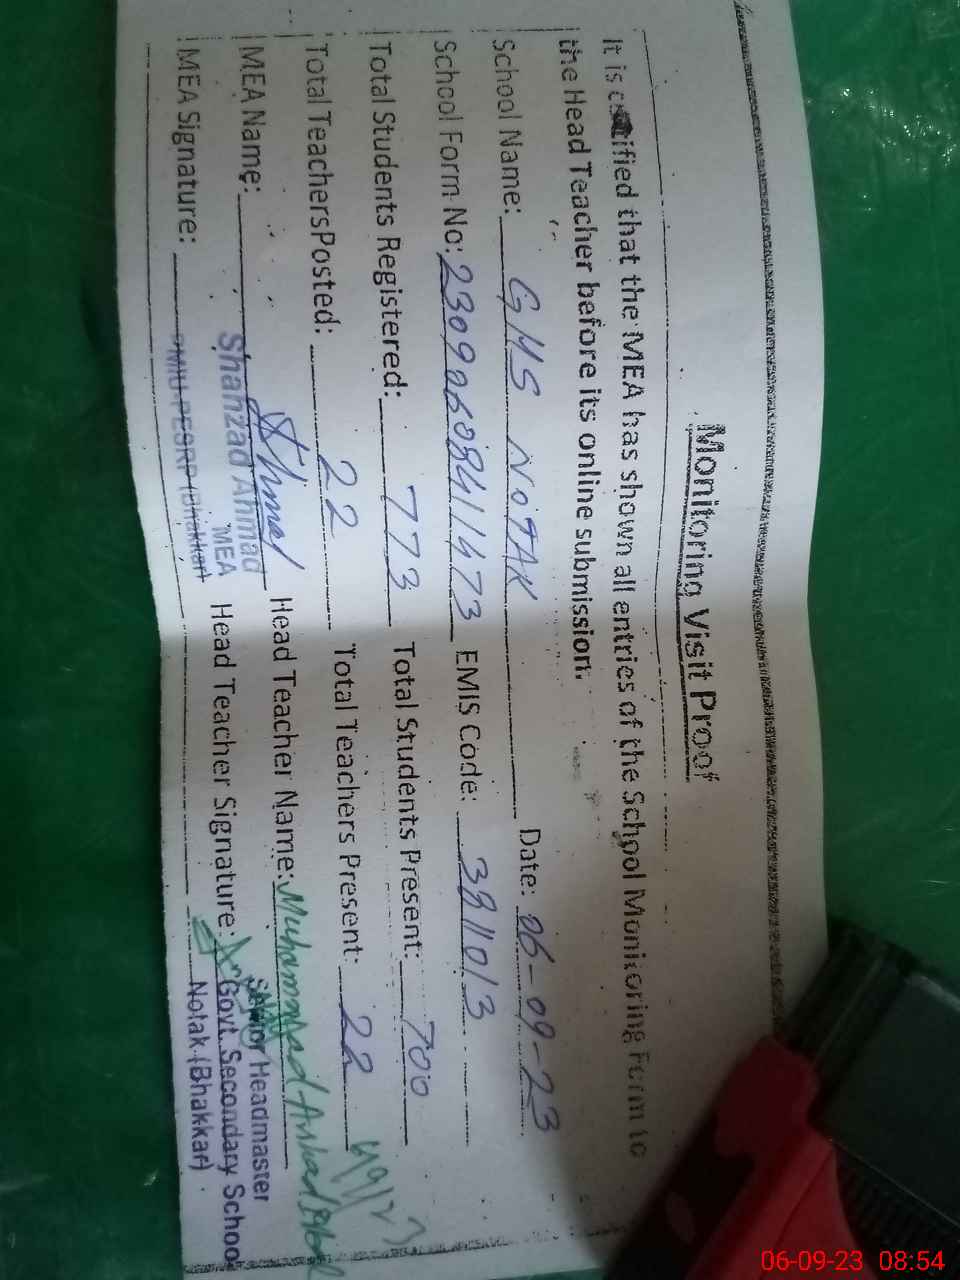 Monitoring Visit Proof
It is certified that the MEA has shown all entries of the School Monitoring Form to
the Head Teacher before its online submission.
School Name: GHS NOTAK Date: 06-09-23
School Form No: 2309060841473 EMIS Code: 3811013
Total Students Registered: 773 Total Students Present: 700
Total Teachers Posted: 22 Total Teachers Present: 22
MEA Name: Head Teacher Name: Muhammad Arshad
Shahzad Ahmad
MEA
PMIU-PESRP (Bhakkar)
MEA Signature: Head Teacher Signature:
Senior Headmaster
Govt. Secondary School
Notak (Bhakkar)
06-09-23 08:54